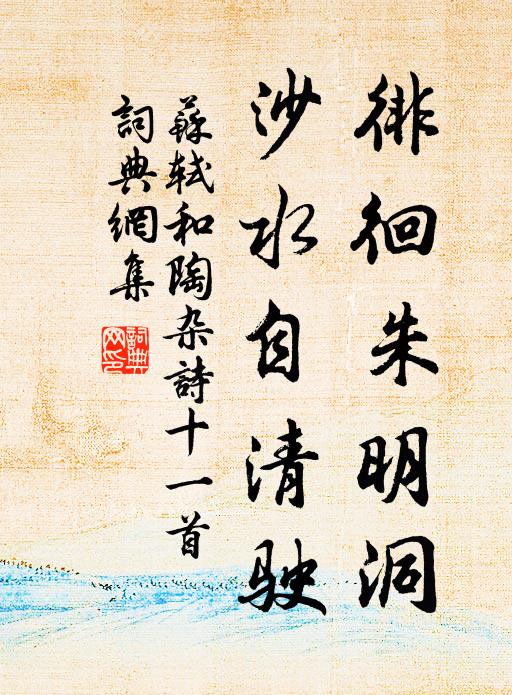 徘徊朱明洞
沙水自清駛
蘇軾和陶杂詩十一首
詞典網集
詞典網印